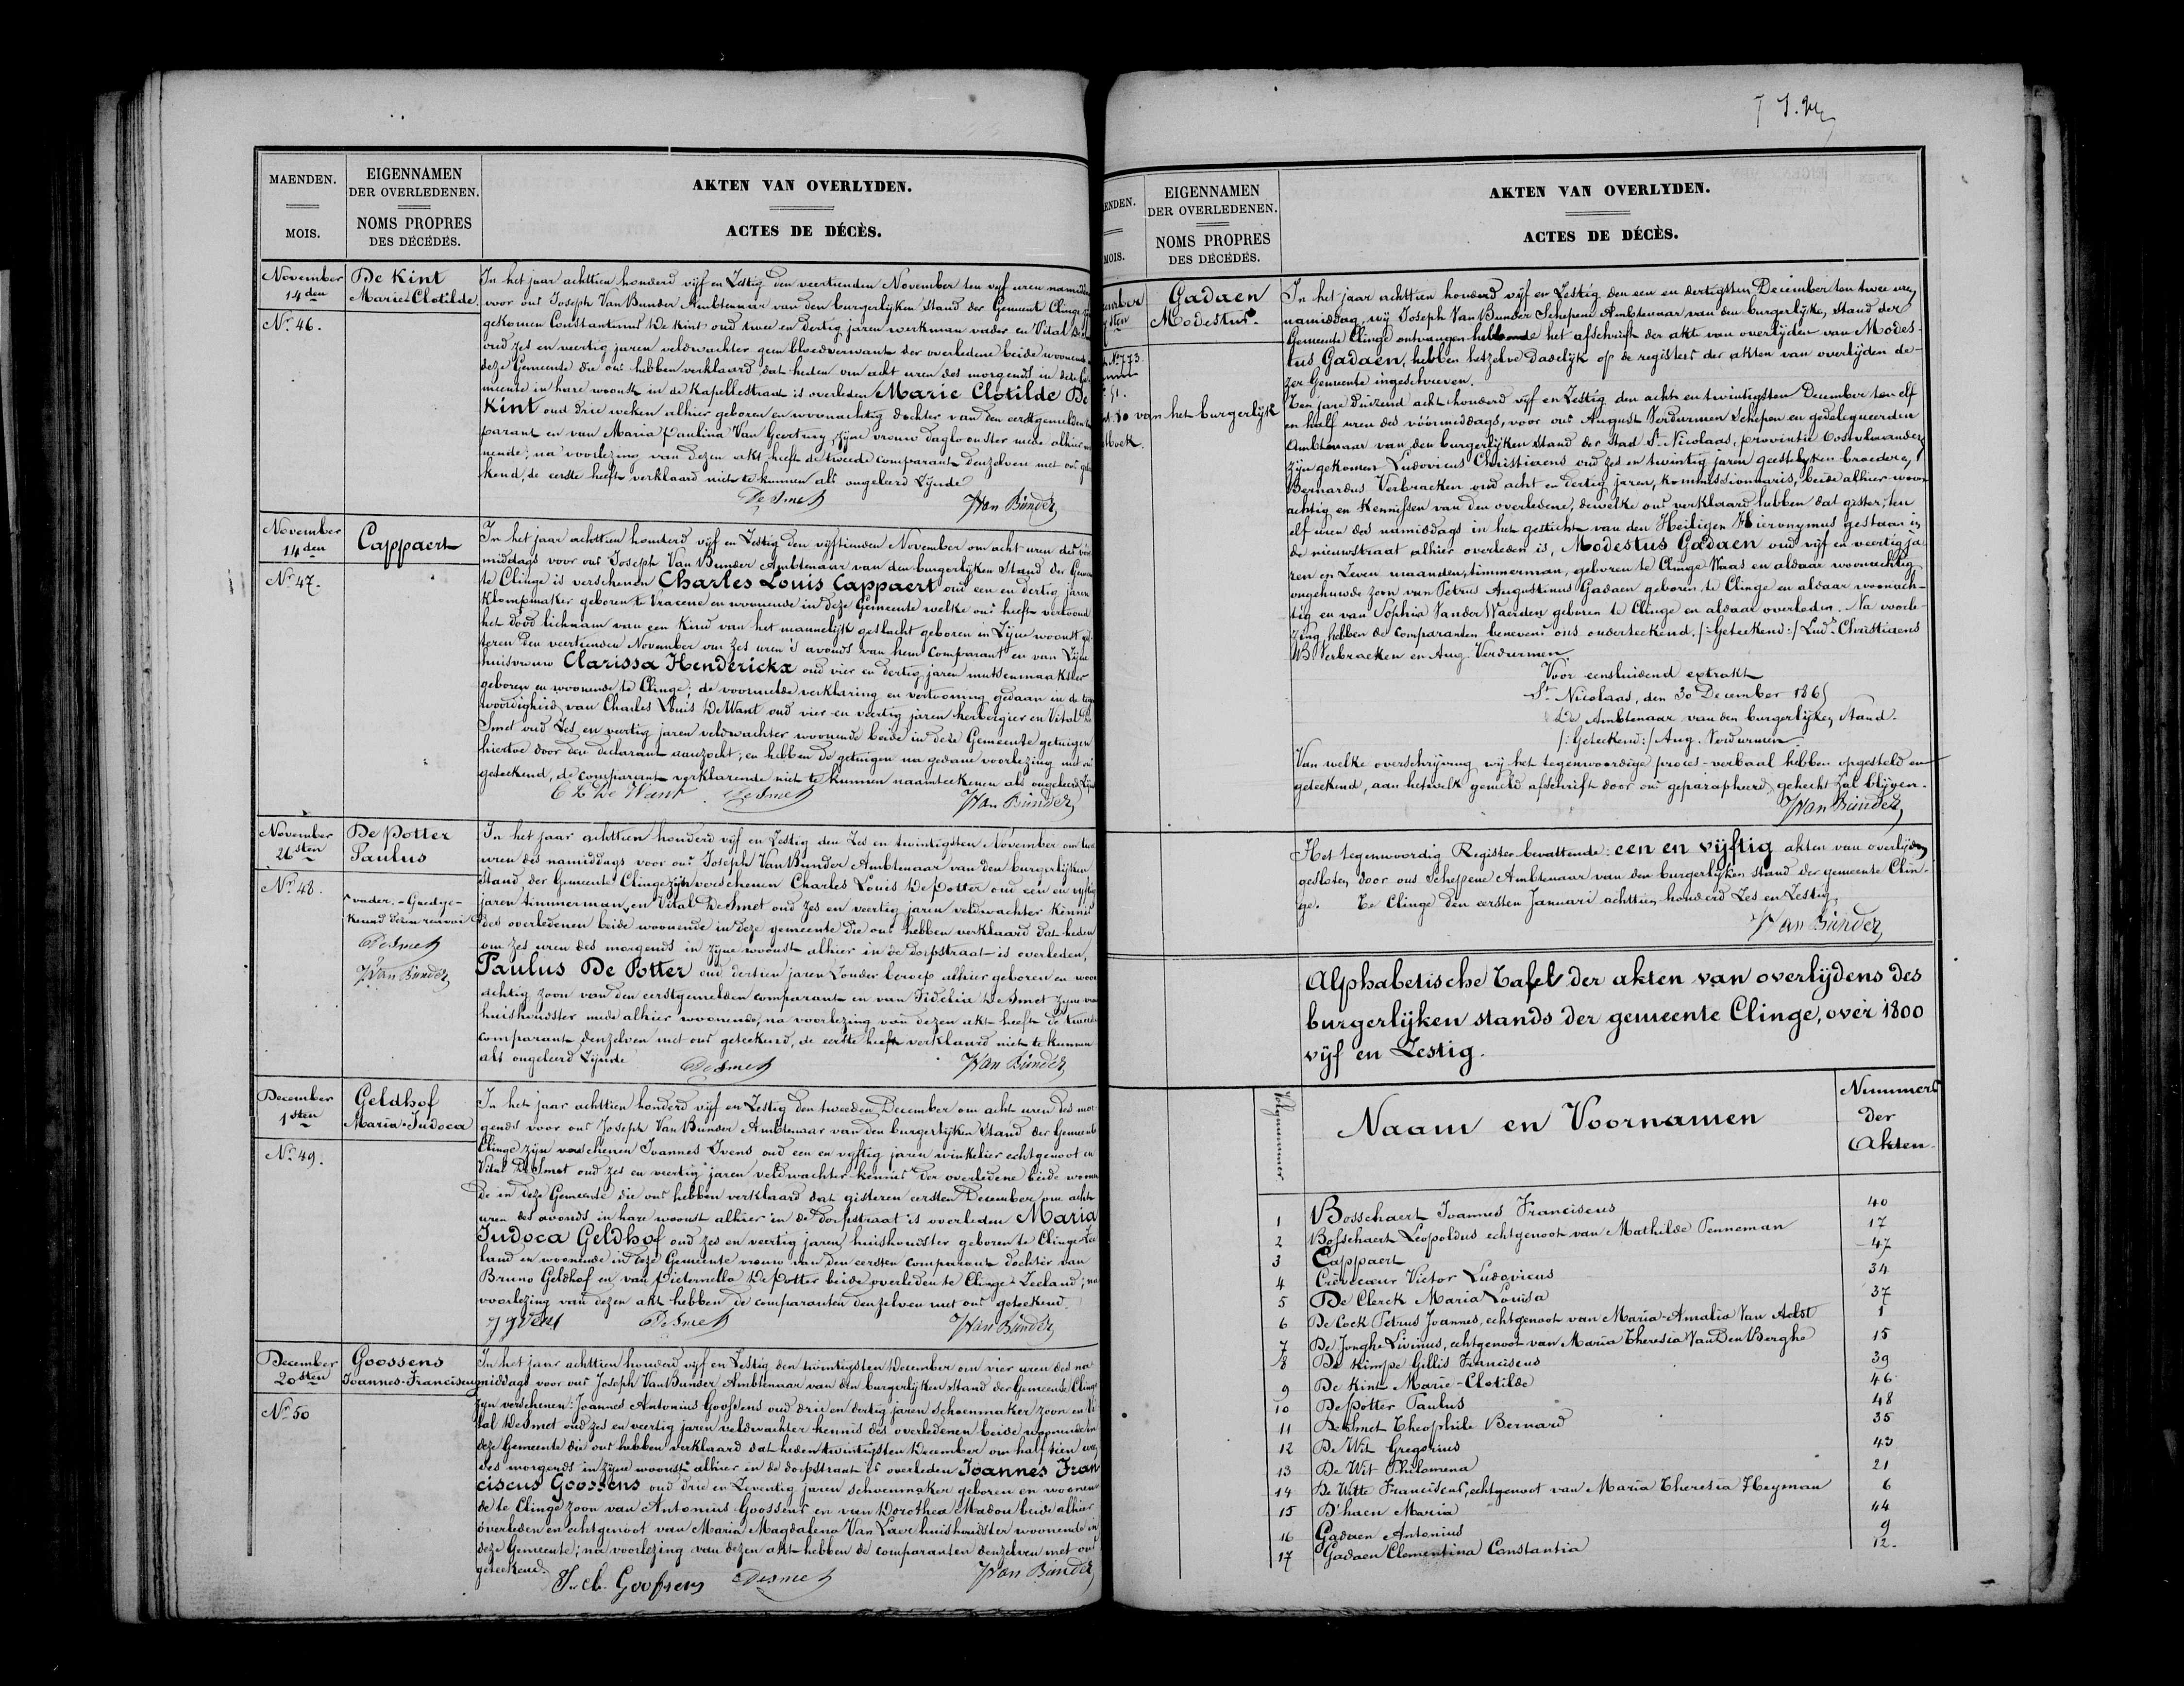 MAENDEN.
MOIS.
EIGENNAMEN
DER OVERLEDENEN.
NOMS PROPRES
DES DÉCÉDÉS.
AKTEN VAN OVERLYDEN.
ACTES DE DÉCÈS.
November
14den
Nr 46.
De Kint
Marie Clotilde.
In het jaar achttien honderd vyf en Zestig den veertienden November ten vyf uren namiddag
voor ons Joseph Van Bunder Ambtenaar van den burgerlyken Stand der Gemeente Clinge
gekomen Constantinus De Kint oud twee en dertig jaren werkman vader en Vital De
oud zes en veertig jaren veldwachter geen bloedverwant der overledene beide woonende
deze Gemeente die ons hebben verklaard dat heden om acht uren des morgends in deze Ge
meente in hare woonst in de Kapellestraat is overleden Marie Clotilde De
Kint oud drie weken alhier geboren en woonachtig dochter van den eerstgemelden com
parant en van Maria Paulina Van Geertruy Zyne vrouw dagloonster mede alhier woo
nende; na voorlezing van dezen akt heeft de tweede comparant denzelven met ons getee
kend, de eerste heeft verklaard niet te kunnen als ongeleerd Zynde
De Smet
J Van Bunder
November
14den
Nr 47.
Cappaert
In het jaar achttien honderd vyf en Zestig den vyftienden November om acht uren des voor
middags voor ons Joseph Van Bunder Ambtenaar van den burgerlyken Stand der Gemeen
te Clinge is verschenen Charles Louis Cappaert oud een en dertig jaren
Klompmaker geboren te Vracene en woonende in deze Gemeente welke ons heeft vertoond
het dood lichaam van een Kind van het mannelyk geslacht geboren in Zyne woonst gis
teren den veertienden November om zes uren 's avonds van hem comparant en van Zyne
huisvrouw Clarissa Henderickx oud vier en dertig jaren mutsenmaakster
geboren en woonende te Clinge; de voormelde verklaring en vertooning gedaan in de tegen
woordigheid van Charles Louis De Want oud vier en veertig jaren herbergier en Vital De
Smet oud Zes en veertig jaren veldwachter woonende beide in deze Gemeente getuigen
hiertoe door den declarant aanzocht; en hebben de getuigen na gedane voorlezing met ons
geteekend, de comparant verklarende niet te kunnen naamteekenen als ongeleerd Zyn
Ch L De Want
De Smet
J Van Bunder
November
26sten
Nr 48.
De Potter
Paulus
vader. - Goedge-
keurd dezen renvooi
De Smet
J Van Bunder
In het jaar achttien honderd vyf en Zestig den Zes en twintigsten November om twee
uren des namiddags voor ons Joseph Van Bunder Ambtenaar van den burgerlyken
Stand der Gemeente Clinge zyn verschenen Charles Louis De Potter oud een en vyftig
jaren timmerman, en Vital De Smet oud zes en veertig jaren veldwachter Kennis
des overledenen beide woonende in deze gemeente die ons hebben verklaard dat heden
om zes uren des morgends in zyne woonst alhier in de dorpstraat is overleden,
Paulus De Potter oud dertien jaren Zonder beroep alhier geboren en woon
achtig zoon van den eerstgemelden comparant en van Fidelia De Smet Zyne vrouw
huishoudster mede alhier woonende, na voorlezing van dezen akt heeft de tweede
comparant denzelven met ons geteekend, de eerste heeft verklaard niet te kunnen
als ongeleerd Zynde
De Smet
J Van Bunder
December
1sten
Nr 49.
Geldhof
Maria-Judoca
In het jaar achttien honderd vyf en Zestig den tweeden December om acht uren des mor
gends voor ons Joseph Van Bunder Ambtenaar van den burgerlyken Stand der Gemeente
Clinge zyn verschenen Joannes Ivens oud een en vyftig jaren winkelier echtgenoot en
Vital De Smet oud zes en veertig jaren veldwachter kennis der overledene beide woonen
de in deze Gemeente die ons hebben verklaard dat gisteren eersten December om acht
uren des avonds in hare woonst alhier in de dorpstraat is overleden Maria
Judoca Geldhof oud zes en veertig jaren huishoudster geboren te Clinge Zee
land en woonende in deze Gemeente vrouw van den eersten comparant dochter van
Bruno Geldhof en van Pieternella De Potter beide overleden te Clinge Zeeland; na
voorlezing van dezen akt hebben de comparanten denzelven met ons geteekend.
De Smet
J Van Bunder
December
20sten
Nr 50
Goossens
Joannes-Franciscus
In het jaar achttien honderd vyf en Zestig den twintigsten December om vier uren des na
middags voor ons Joseph Van Bunder Ambtenaar van den burgerlyken Stand der Gemeente Clinge
zyn verschenen: Joannes Antonius Goossens oud drie en dertig jaren schoenmaker zoon en Vi
tal De Smet oud zes en veertig jaren veldwachter kennis des overledenen beide woonende in
deze Gemeente die ons hebben verklaard dat heden twintigsten December om half tien uren
des morgends in zyne woonst alhier in de dorpstraat is overleden Joannes Fran
ciscus Goossens oud drie en Zeventig jaren schoenmaker geboren en woonen
de te Clinge zoon van Antonius Goossens en van Dorothea Madou beide alhier
overleden en echtgenoot van Maria Magdalena Van Lare huishoudster woonende in
deze Gemeente; na voorlezing van dezen akt hebben de comparanten denzelven met ons
geteekend.
Goossens
De Smet
J Van Bunder
ENDEN.
MOIS.
EIGENNAMEN
DER OVERLEDENEN.
NOMS PROPRES
DES DÉCÉDÉS.
AKTEN VAN OVERLYDEN.
ACTES DE DÉCÈS.
Gadaen
Modestus.
No 773.
51.
van het burgerlyk
boek.
In het jaar achttien honderd vyf en Zestig den een en dertigsten December ten twee uren
namiddag, wy Joseph Van Bunder Schepene Ambtenaar van den burgerlyken Stand der
Gemeente Clinge ontvangen hebbende het afschrift der akt van overlyden van Modes-
tus Gadaen, hebben hetzelve dadelyk op de registers der akten van overlyden de-
zer Gemeente ingeschreven.
Ten jare duizend acht honderd vyf en Zestig den acht en twintigsten December ten elf
en half uren des vóórmiddags, voor ons August Verdurmen Schepen en gedelegueerden
Ambtenaar van den burgerlyken Stand der Stad St Nicolaas, provintie Oostvlaanderen,
zyn gekomen Ludovicus Christiaens oud zes en twintig jaren geestelyken broeder en
Bernardus Verbraeken oud acht en dertig jaren, kommissionnaris, beide alhier woon-
achtig en Kennissen van den overledene, dewelke ons verklaard hebben dat gister, ten
elf uren des namiddags in het gesticht van den Heiligen Hieronymus gestaan in
de nieuwstraat alhier overleden is, Modestus Gadaen oud vyf en veertig ja-
ren en Zeven maanden, timmerman, geboren te Clinge-Waas en aldaar woonachtig
ongehuwde zoon van Petrus Augustinus Gadaen geboren te Clinge en aldaar woonach-
tig en van Sophia Vander Waerden geboren te Clinge en aldaar overleden. Na voorle-
zing hebben de comparanten benevens ons onderteekend. /:Geteekend:/ Luds Christiaens
B Verbraeken en Aug. Verdurmen.
Voor eensluidend extrakt
St Nicolaas, den 30 December 1865
De Ambtenaar van den burgerlyken Stand.
/:Geteekend:/ Aug. Verdurmen
Van welke overschryving wy het tegenwoordige proces-verbaal hebben opgesteld en
geteekend, aan hetwelk gemeld afschrift door ons geparapheerd, gehecht zal blyven.
J Van Bunder
Het tegenwoordig Register bevattende: een en vyftig akten van overlyden
gesloten door ons Schepene Ambtenaar van den burgerlyken stand der gemeente Clin-
ge. Te Clinge den eersten Januari achttien honderd Zes en Zestig
J Van Bunder
Alphabetische Tafel der akten van overlijdens des
burgerlijken stands der gemeente Clinge, over 1800
vijf en Zestig.
Volgnummer
Naam en Voornamen
Nummers
der
Akten.
1 Bosschaert Joannes Franciscus 40
2 Bosschaert Leopoldus echtgenoot van Mathilde Penneman 17
3 Cappaert 47
4 Crèvecœur Victor Ludovicus 34
5 De Clerck Maria Louisa 37
6 De Cock Petrus Joannes, echtgenoot van Maria-Amalia Van Aelst 1
7 De Jonghe Livinus, echtgenoot van Maria Theresia Van Den Berghe 15
8 De Kimpe Gillis Franciscus 39
9 De Kint Marie-Clotilde 46
10 De Potter Paulus 48
11 De Smet Theophile Bernard 35
12 De Wit Gregorius 43
13 De Wit Philomena 21
14 De Witte Franciscus, echtgenoot van Maria Theresia Heyman 6
15 D'haen Maria 44
16 Gadaen Antonius 9
17 Gadaen Clementina Constantia 12.